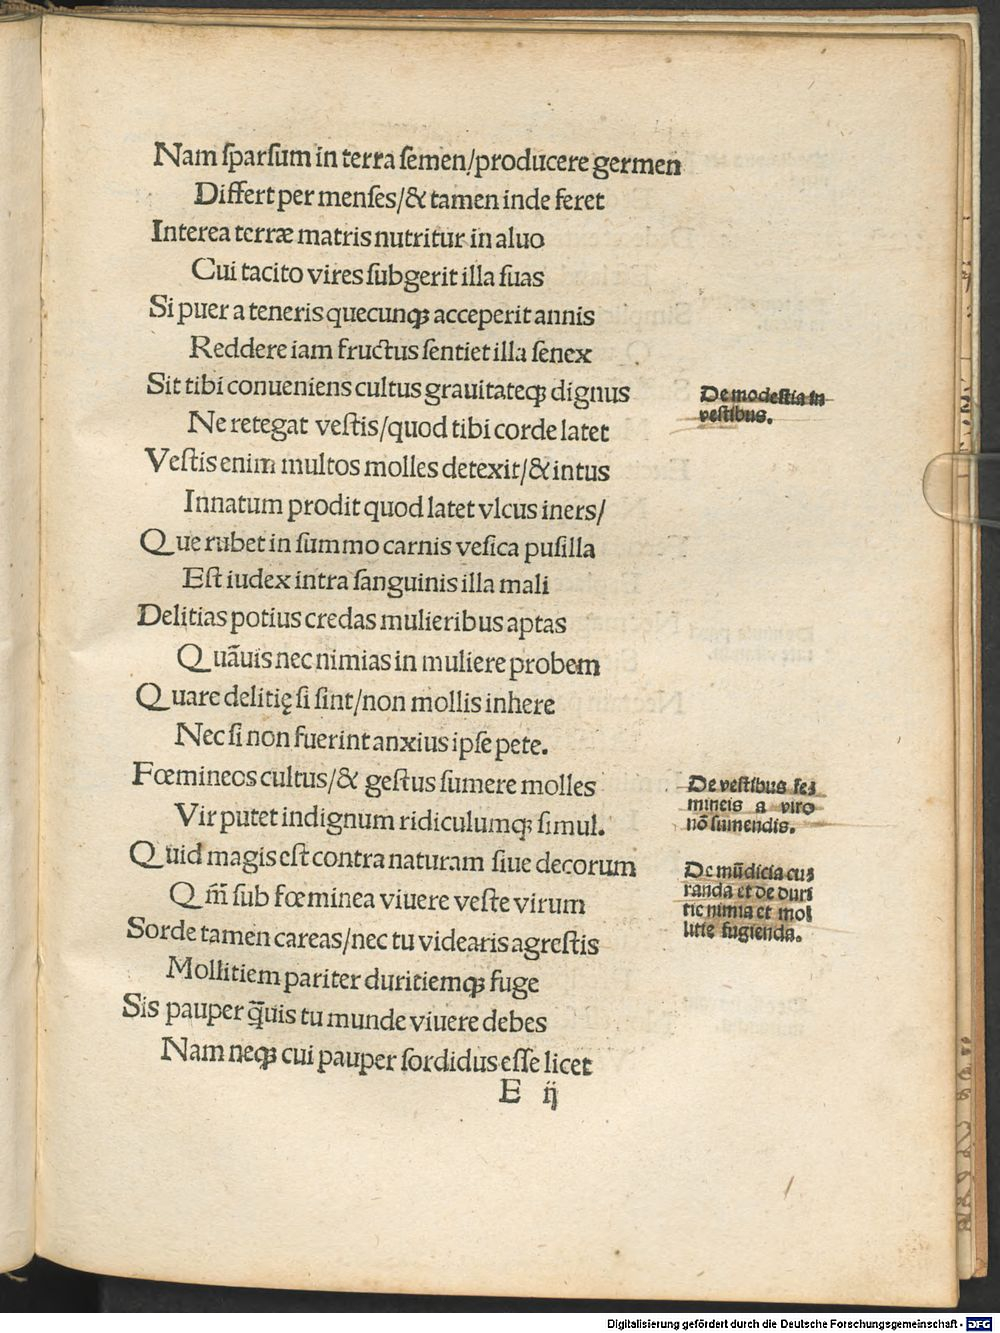 Nam ſparſum in terra ſemen/producere germen
Differt per menſes/& tamen inde feret
Interea terræ matris nutritur in aluo
Cui tacito vires ſubgerit illa ſuas
Si puer a teneris quecunqꝫ acceperit annis
Reddere iam fructus ſentiet illa ſenex
Sit tibi conueniens cultus grauitateqꝫ dignus
De modeſtia in
veſtibus.
Ne retegat veſtis/quod tibi corde latet
Veſtis enim multos molles detexit/& intus
Innatum prodit quod latet vlcus iners/
Que rubet in ſummo carnis veſica puſilla
Eſt iudex intra ſanguinis illa mali
Delitias potius credas mulieribus aptas
Quāuis nec nimias in muliere probem
Quare delitię ſi ſint/non mollis inhere
Nec ſi non fuerint anxius ipſe pete.
Fœmineos cultus/& geſtus ſumere molles
De veſtibus fez
mineis a viro
nō ſumendis.
Vir putet indignum ridiculumqꝫ ſimul.
Quid magis eſt contra naturam ſiue decorum
De mūdicia cuz
randa et de duri
tie nimia et mol
litie fugienda.
Qm̄ ſub fœminea viuere veſte virum
Sorde tamen careas/nec tu videaris agreſtis
Mollitiem pariter duritiemqꝫ fuge
Sis pauper q̄uis tu munde viuere debes
Nam neqꝫ cui pauper ſordidus eſſe licet
E ij
Digitalisierung gefördert durch die Deutsche Forschungsgemeinschaft - DFG